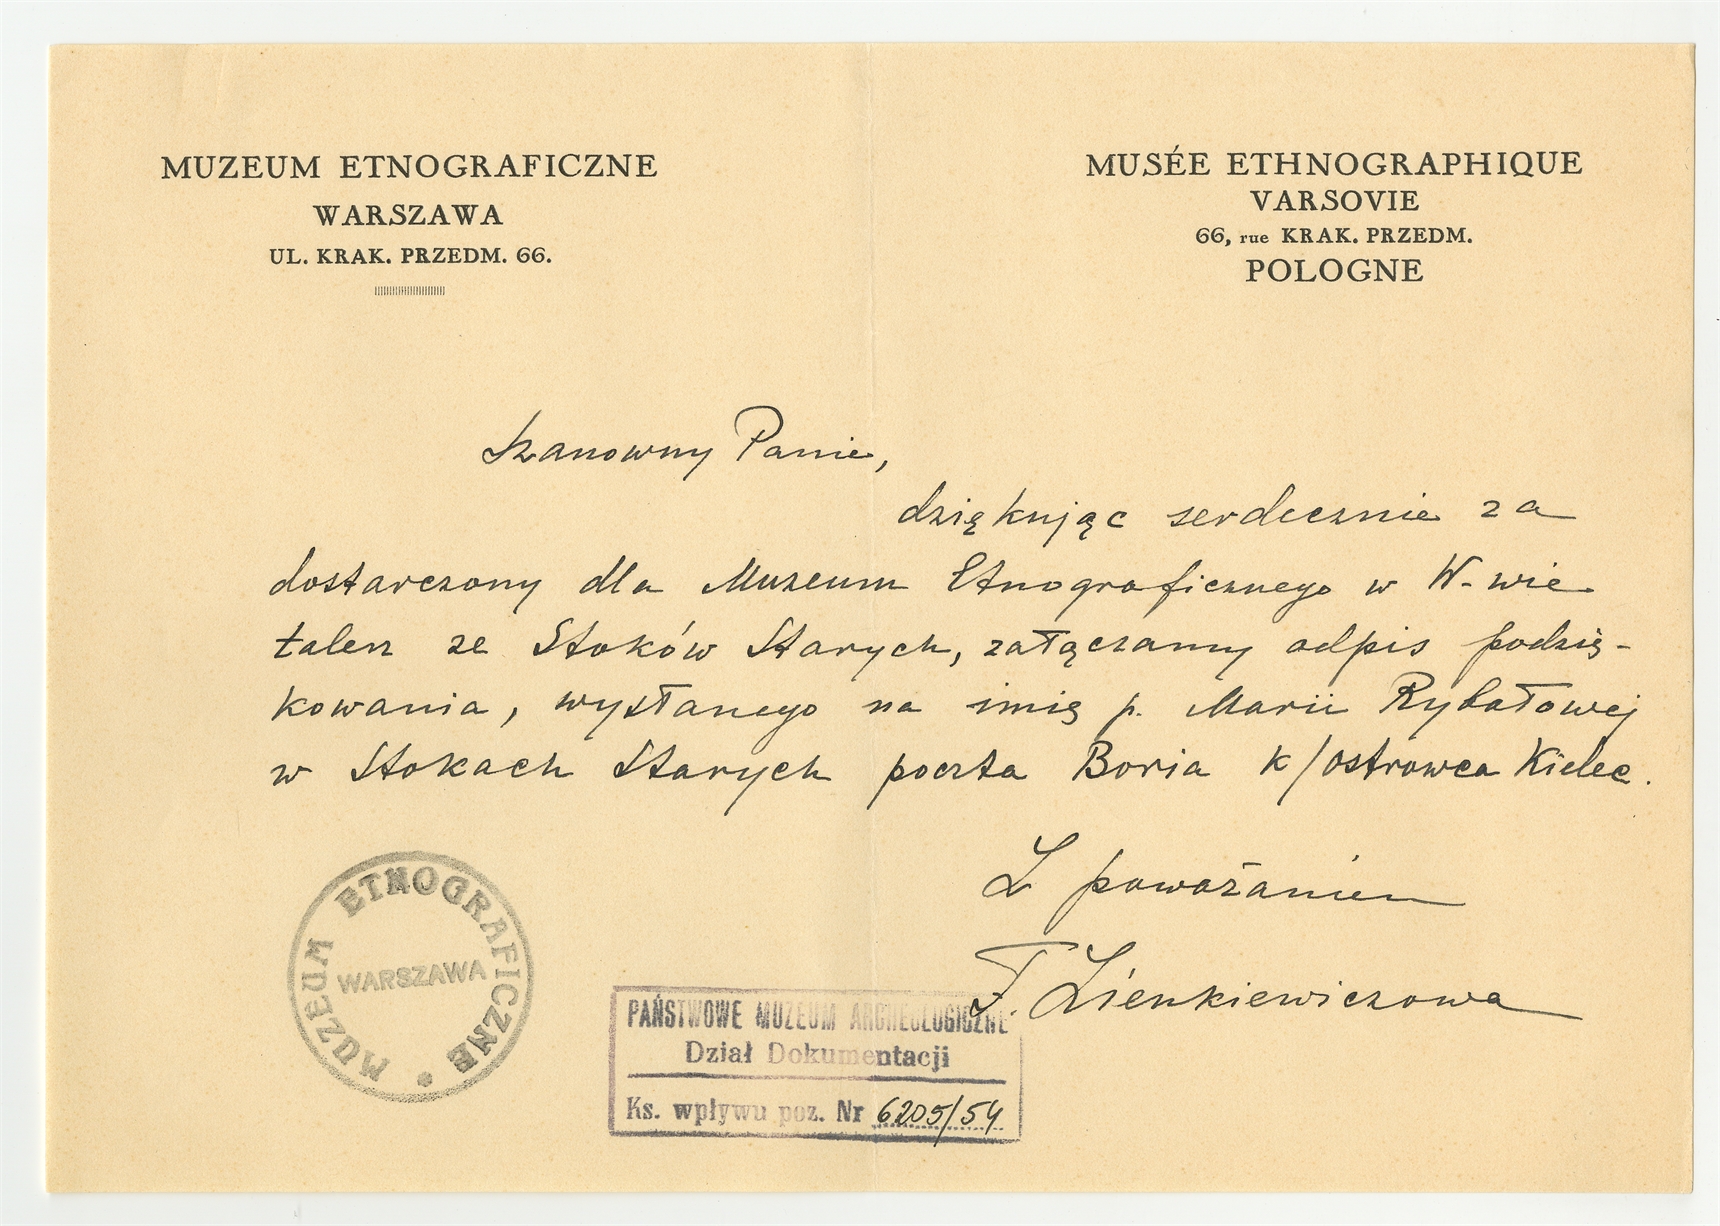 MUZEUM ETNOGRAFICZNE
WARSZAWA
UL. KRAK. PRZEDM. 66.
MUSÉE ETHNOGRAPHIQUE
VARSOVIE
66, rue KRAK. PRZEDM.
POLOGNE
Szanowny Panie,
dziękując serdecznie za
dostarczony dla Muzeum Etnograficznego w W-wie
talerz ze Stoków Starych, załączamy odpis podzię-
kowania, wysłanego na imię p. Marii Rybałowej
w Stokach Starych poczta Boria k/Ostrowca Kielec.
Z poważaniem
MUZEUM ETNOGRAFICZNE
WARSZAWA
PAŃSTWOWE MUZEUM ARCHEOLOGICZNE
Dział Dokumentacji
Ks. wpływu poz. Nr 6205/54